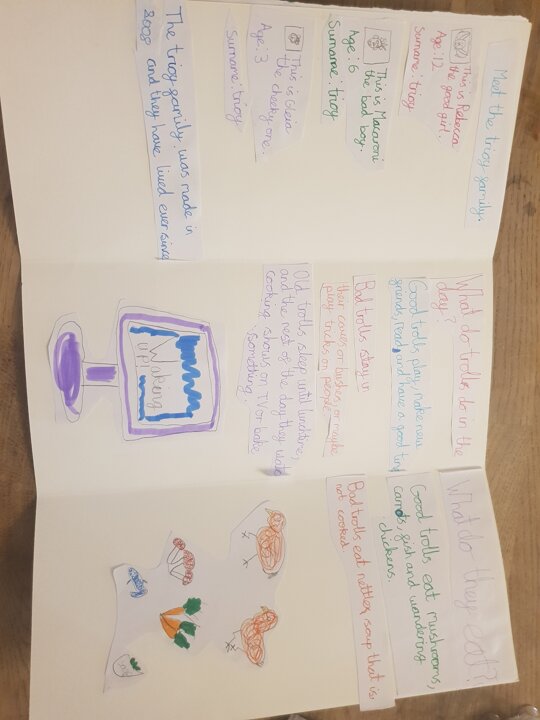 Meet the trioy family.
This is Rebecca
the good girl.
Age: 12
Surname: trioy
This is Macaroni
the bad boy.
Age: 6
Surname: trioy
This is Gloia
the cheeky one.
Age: 3
Surname: trioy
The trioy family was made in
2008 and they have lived ever since
What do trolls do in the
day?
Good trolls play, make new
friends, read, and have a good time
Bad trolls stay in
their caves or bushes or maybe
play tricks on people.
Old trolls sleep until lunchtime,
and the rest of the day they watch
cooking shows on TV or bake
something.
Waking
UP!
What do they eat?
Good trolls eat mushrooms,
carrots, fish and wandering
chickens.
Bad trolls eat nettley soup that is
not cooked